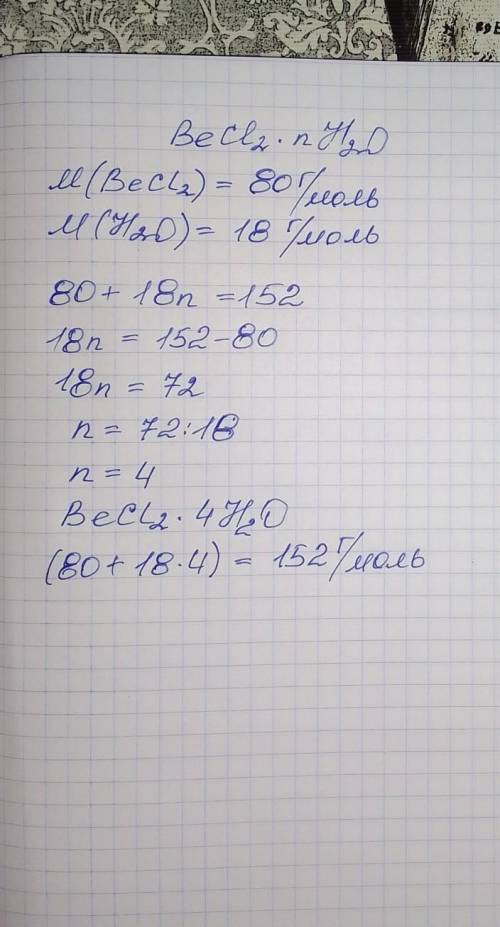 BeCl₂ · nH₂O
M(BeCl₂) = 80 г/моль
M(H₂O) = 18 г/моль
80 + 18n = 152
18n = 152 - 80
18n = 72
n = 72 : 18
n = 4
BeCl₂ · 4H₂O
(80 + 18 · 4) = 152 г/моль